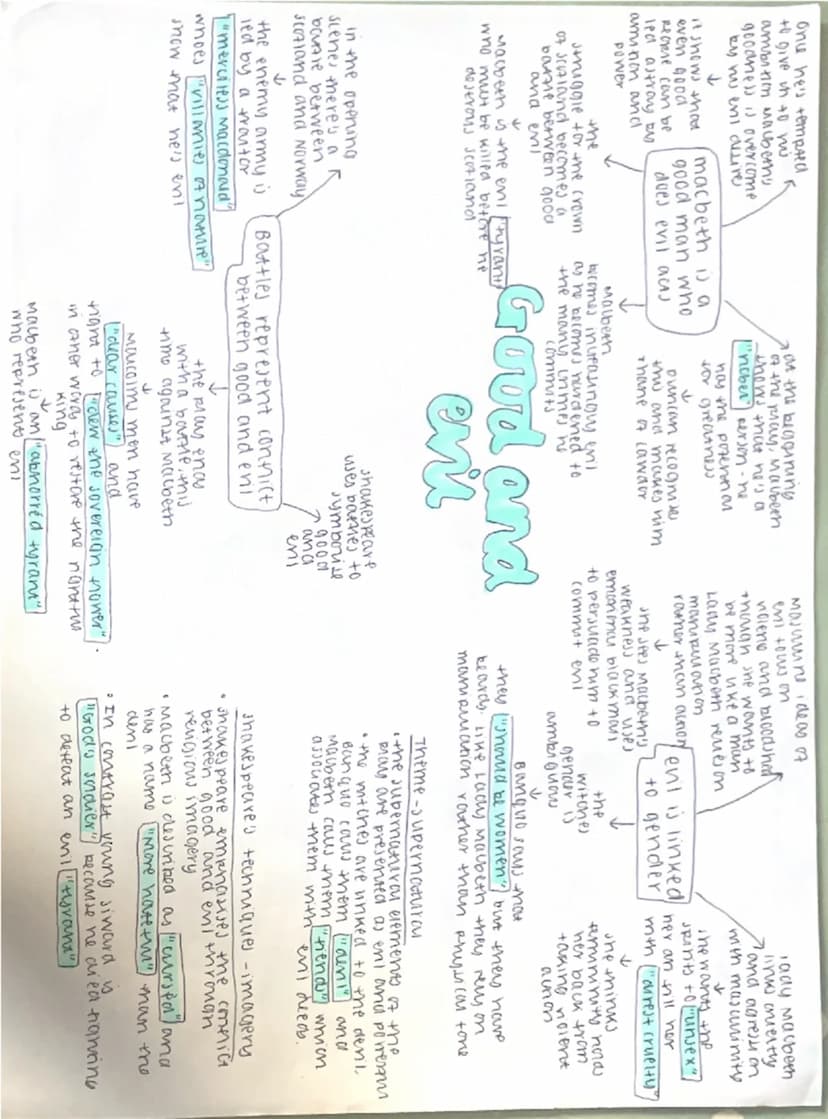 Good and
evil
macbeth is a
good man who
does evil acts
at the beginning
of the play, macbeth
shows that he's a
"nobel" person - he
has the potential
for greatness
duncan recognises
this and makes him
thane of cawdor
once he's tempted
to give in to his
ambition macbeths
goodness is overcome
by his evil desires
it shows that
even good
people can be
led astray by
ambition and
power
macbeth
becomes increasingly evil
as he becomes hardened to
the many crimes he
commits
the
struggle for the crown
of scotland becomes a
battle between good
and evil
macbeth is the evil "tyrant"
who must be killed before he
destroys scotland
evil is linked
to gender
lady macbeth
links cruelty
and agression
with masculinity
she wants the
spirits to "unsex"
her an fill her
with "direst cruelty"
she thinks
femininity holds
her back from
taking violent
action
masculine ideas of
evil focus on
violence and bloodshed
though she wants to
be more like a man
Lady Macbeth relies on
manipulation
rather than action
she sees macbeths
weakness and uses
emotional blackmail
to persuade him to
commit evil
the
witches
gender is
ambiguous
Banquo says that
they "should be women" but they have
beards. like Lady Macbeth they rely on
manipulation rather than physical force
Battles represent conflict
between good and evil
in the opening
scenes there's a
battle between
scotland and Norway
the enemy army is
led by a traitor
"merciless macdonald"
whoes "villainies of nature"
show that he's evil
the play ends
with a battle, this
time against Macbeth
malcolms men have
"dear causes" and
fight to "dew the sovereign flower".
in other words to restore the rightful
king
Macbeth is an "abhorred tyrant"
who represents evil
shakespeare
uses battles to
symbolise
good
and
evil
Theme - supernatural
• the supernatural elements of the
play are presented as evil and powerful
• the witches are linked to the devil,
Banquo calls them "devil" and
Macbeth calls them "fiends" which
associates them with evil deeds.
shakespeares techniques - imagery
• shakespeare emphasises the conflict
between good and evil through
religious imagery
• Macbeth is described as "cursed" and
has a name "more hateful" than the
devil
• In contrast young siward is
"God's soldier" because he died fighting
to defeat an evil "tyrant"